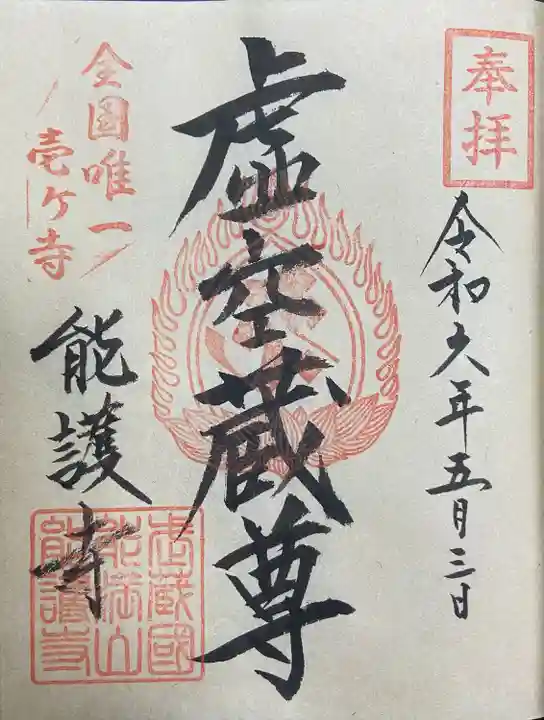 奉拝
令和六年五月三日
虚空蔵尊
全国唯一
壱ケ寺
能護寺
武蔵國
能満山
能護寺